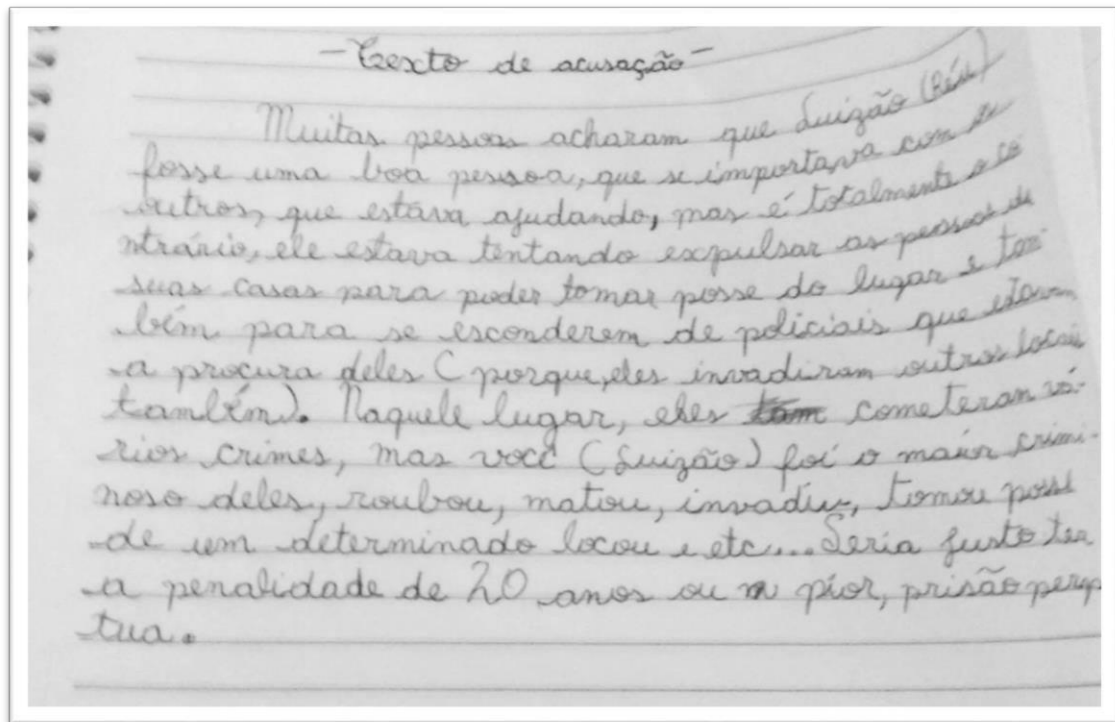 - Texto de acusação -
Muitas pessoas acharam que Luizão (Réu)
fosse uma boa pessoa, que se importava com
outros, que estava ajudando, mas é totalmente o co
ntrário, ele estava tentando expulsar as pessoas de
suas casas para poder tomar posse do lugar e tam-
bém para se esconderem de policiais que estavam
a procura deles (porque, eles invadiram outros locais
também). Naquele lugar, eles cometeran vá-
rios crimes, mas você (Luizão) foi o maior crimi-
noso deles, roubou, matou, invadiu, tomou posse
de um determinado locou e etc... Seria justo ter
a penalidade de 20 anos ou pior, prisão perpé
tua.